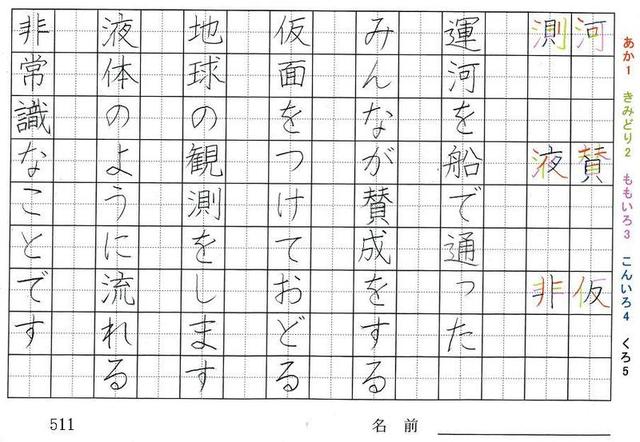 あか1 きみどり2 ももいろ3 こんいろ4 くろ5
河 賛 仮
測 液 非
運河を船で通った
みんなが賛成をする
仮面をつけておどる
地球の観測をします
液体のように流れる
非常識なことです
511
名前